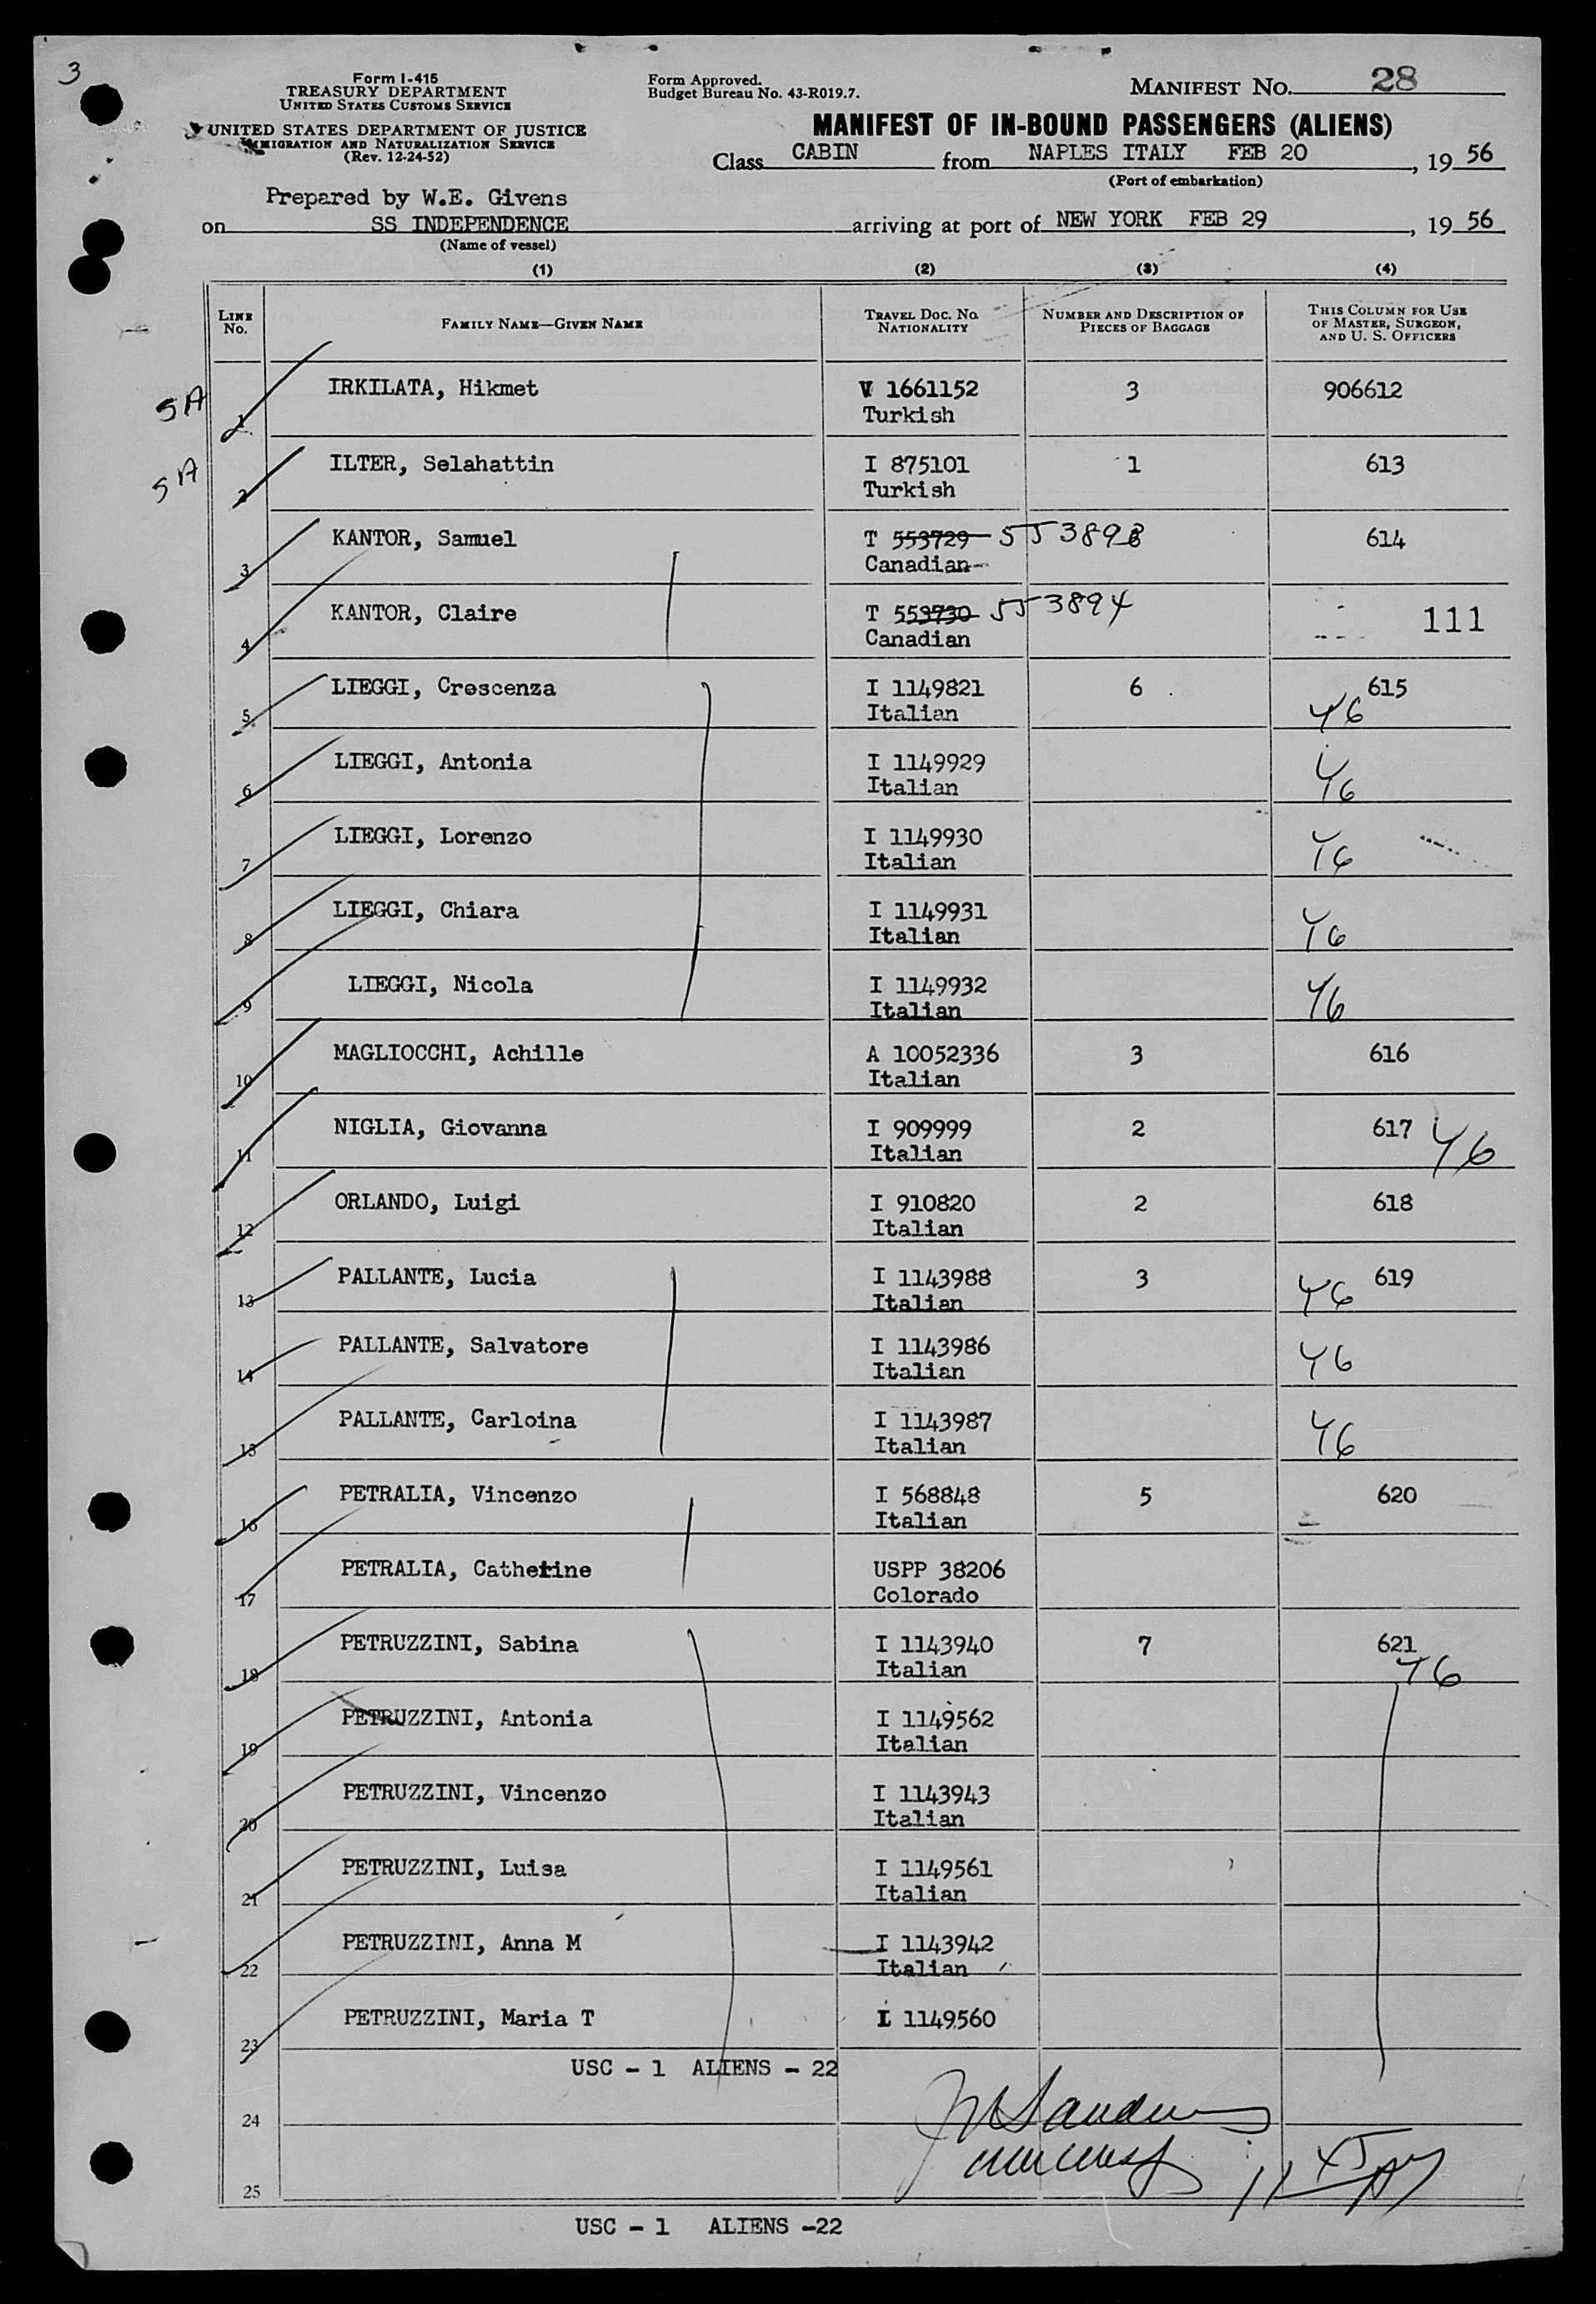 3
Form I-415
TREASURY DEPARTMENT
UNITED STATES CUSTOMS SERVICE
UNITED STATES DEPARTMENT OF JUSTICE
IMMIGRATION AND NATURALIZATION SERVICE
(Rev. 12-24-52)
Form Approved.
Budget Bureau No. 43-R019.7.
MANIFEST No. 28
MANIFEST OF IN-BOUND PASSENGERS (ALIENS)
Class CABIN from NAPLES ITALY FEB 20, 19 56
(Port of embarkation)
Prepared by W.E. Givens
on SS INDEPENDENCE arriving at port of NEW YORK FEB 29, 19 56
(Name of vessel)
(1) (2) (3) (4)
LINE No. FAMILY NAME—GIVEN NAME TRAVEL DOC. No. NATIONALITY NUMBER AND DESCRIPTION OF PIECES OF BAGGAGE THIS COLUMN FOR USE OF MASTER, SURGEON, AND U. S. OFFICERS
SA 1 IRKILATA, Hikmet V 1661152 3 906612
Turkish
SA 2 ILTER, Selahattin I 875101 1 613
Turkish
3 KANTOR, Samuel T 553729 553893 614
Canadian
4 KANTOR, Claire T 553730 553894 111
Canadian
5 LIEGGI, Crescenza I 1149821 6 615
Italian 46
6 LIEGGI, Antonia I 1149929
Italian 46
7 LIEGGI, Lorenzo I 1149930
Italian 46
8 LIEGGI, Chiara I 1149931
Italian 46
9 LIEGGI, Nicola I 1149932
Italian 46
10 MAGLIOCCHI, Achille A 10052336 3 616
Italian
11 NIGLIA, Giovanna I 909999 2 617 46
Italian
12 ORLANDO, Luigi I 910820 2 618
Italian
13 PALLANTE, Lucia I 1143988 3 46 619
Italian
14 PALLANTE, Salvatore I 1143986 46
Italian
15 PALLANTE, Carloina I 1143987 46
Italian
16 PETRALIA, Vincenzo I 568848 5 620
Italian
17 PETRALIA, Catherine USPP 38206
Colorado
18 PETRUZZINI, Sabina I 1143940 7 621
Italian 46
19 PETRUZZINI, Antonia I 1149562
Italian
20 PETRUZZINI, Vincenzo I 1143943
Italian
21 PETRUZZINI, Luisa I 1149561
Italian
22 PETRUZZINI, Anna M I 1143942
Italian
23 PETRUZZINI, Maria T I 1149560
USC - 1 ALIENS - 22
24
25
USC - 1 ALIENS -22